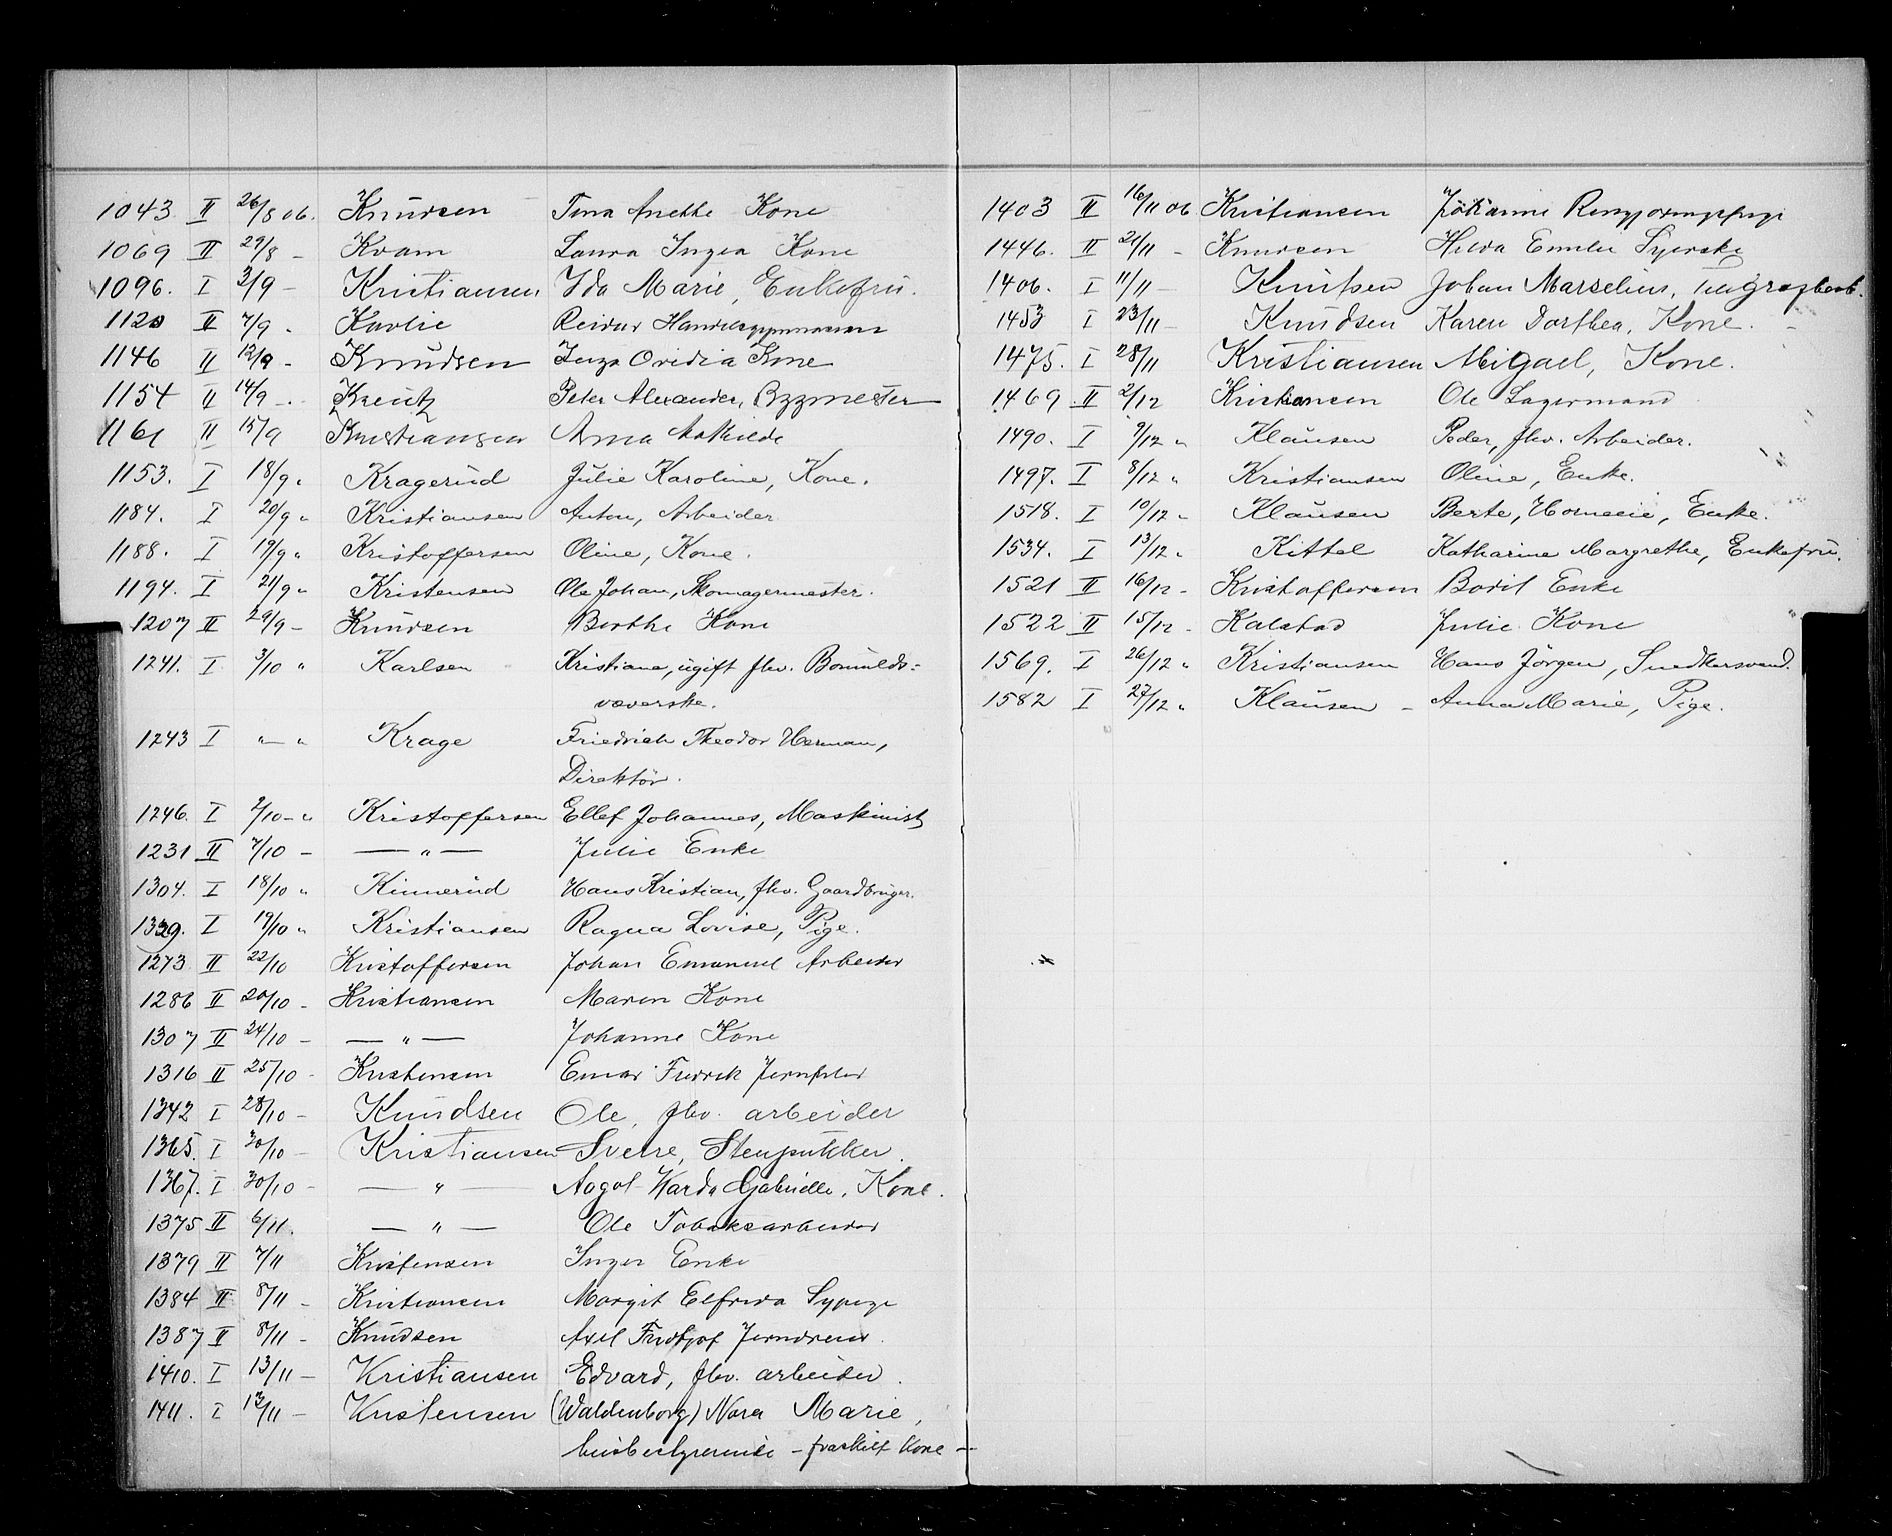 1043 II 26/8 06. Knudsen Tina Anette Kone
1069 II 29/8 - Kvam Laura Ingea Kone
1096. I 3/9 - Kristiansen Ida Marie, Enkefru.
1120 II 7/9 - Kavlie Reidar Handelsgymnasium
1146 II 12/9 - Knudsen Inga Ovidia Kone
1154 II 14/9 - Kreutz Peter Alexander, Bygmester
1161 II 15/9 Kristiansen Anna Mathilde
1153. I 18/9 " Kragerud Julie Karoline, Kone.
1184. I 20/9 " Kristiansen Anton, Arbeider
1188. I 19/9 " Kristoffersen Oline, Kone.
1194. I 21/9 " Kristensen Ole Johan, Skomagermester.
1207 II 29/9 - Knudsen Berthe Kone
1241. I 3/10 " Karlsen Kristiane, ugift fhv. Bomulds-
væverske.
1243 I " — " Krage Friedrich Theodor Herman,
Direktör.
1246. I 2/10 - " Kristoffersen Ellef Johannes, Maskinist
1231 II 7/10 - — " — Julie Enke
1304. I 18/10 " Kinnerud Hans Kristian, fhv. Gaardbruger.
1329. I 19/10 " Kristiansen Ragna Lovise, Pige.
1273 II 22/10 Kristoffersen Johan Emanuel Arbeider
1286 II 20/10 - Kristiansen Maren Kone
1307 II 24/10 - — " — Johanne Kone
1316 II 25/10 - Kristensen Einar Fredrik
1342 I 28/10 - Knudsen Ole, fhv. arbeider
1365. I 30/10 - Kristiansen Sverre, Stenpukker.
1367. I 30/10 - — " — Aagot Harda Gabrielle, Kone.
1375 II 6/11. — " — Ole Tobaksarbeider
1379 II 7/11 Kristensen Inger Enke
1384 II 8/11 - Kristiansen Margit Elfrida Sypige
1387 II 8/11 - Knudsen Axel Fridtjof Jerndreier.
1410. I 13/11 - Kristiansen Edvard, fhv. arbeider.
1411. I 12/11 - Kristensen (Waldenborg) Nora Marie,
husbestyrerinde - fraskilt Kone -
1403 II 16/11 06 Kristiansen Johanne Rengjøringspige
1446. II 21/11 - Knudsen Hilda Emilie Syerske
1406. I 11/11 - Knutsen Johan Marselius,
1453 I 23/11 - Knudsen Karen Dorthea, Kone. -
1475. I 28/11 Kristiansen Migael, Kone.
1469 II 2/12 Kristiansen Ole Lagermand
1490. I 9/12 " Klausen Peder, fhv. Arbeider.
1497. I 8/12 " Kristiansen Oline, Enke.
1518. I 10/12 - Klausen Berte, Enke.
1534. I 13/12 " Kittel Katharine Margrethe, Enkefru.
1521 II 16/12 - Kristoffersen Bodil Enke
1522 II 15/12 - Kalstad Julie Kone
1569. I 26/12 " Kristiansen Hans Jörgen, Snedkersvend.
1582 I 27/12 " Klausen - Anna Marie, Pige.